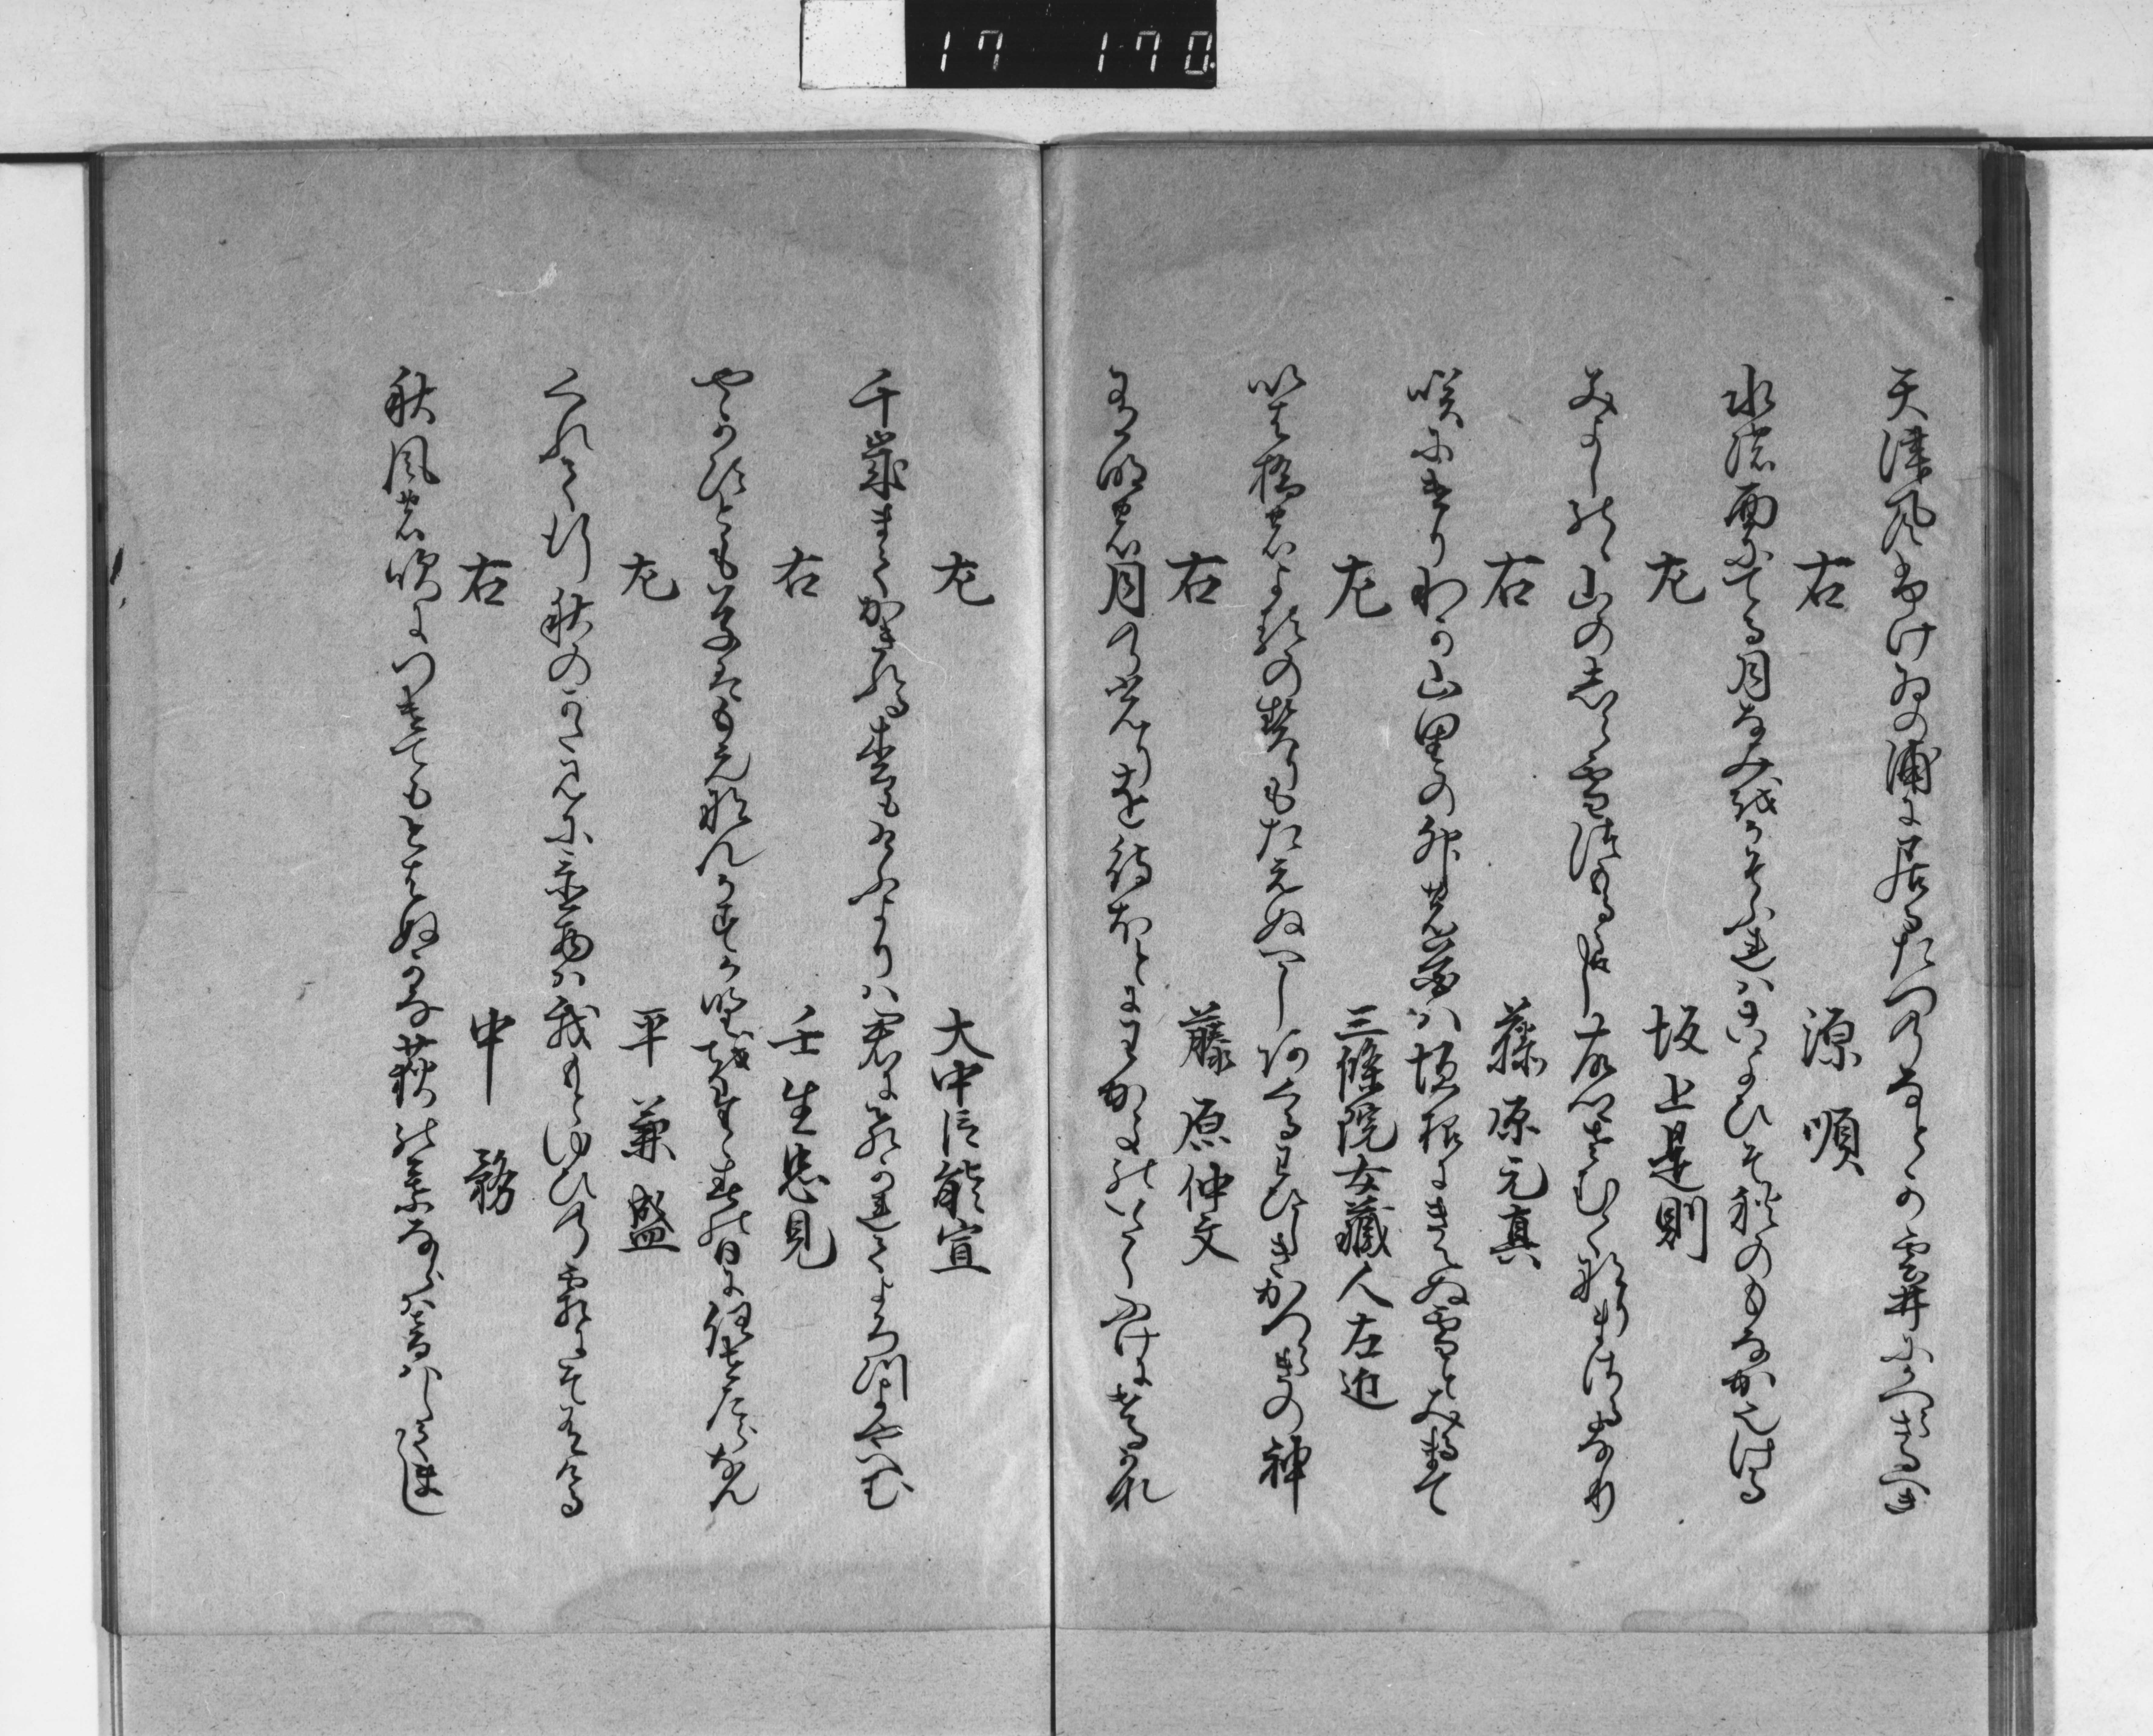 17 170
天津風ふけゐの浦に居るたつのなとか雲井にかへらさるへき
右 源順
水の面にてる月なみをかそふれはこよひそ秋のもなかなりける
左 坂上是則
みよしのゝ山のしら雪つもるらし故郷さむくなりまさるなり
右 藤原元真
咲にけりわか山里の卯花は垣根にきえぬ雪とみるまて
左 三條院女蔵人左近
岩橋のよるの契もたえぬへしあくるわひしきかつらきの神
右 藤原仲文
有明の月のひかりを待ほとにわかよのいたくふけにけるかな
左 大中臣能宣
千歳まてかきれる松もけふよりは君にひかれてよろつよやへむ
右 壬生忠見
やかすとも草はもえなんかすか野をたゝ春の日に任せたらなん
左 平兼盛
くれて行秋のかたみにをく物は我もとゆひの霜にそ有ける
右 中務
秋風の吹につけてもとはぬかな荻の葉ならは音はしてまし